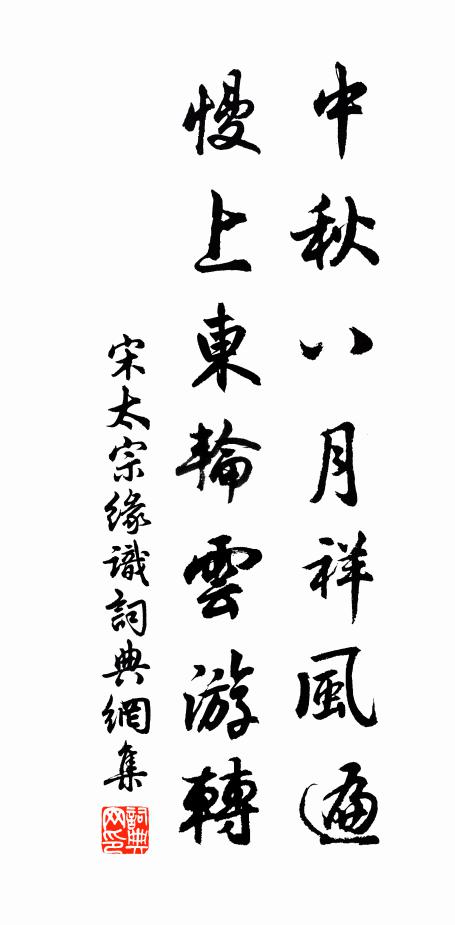 中秋八月祥風遍
慢上東輪雲游轉
宋太宗緣識詞典網集
詞典網印